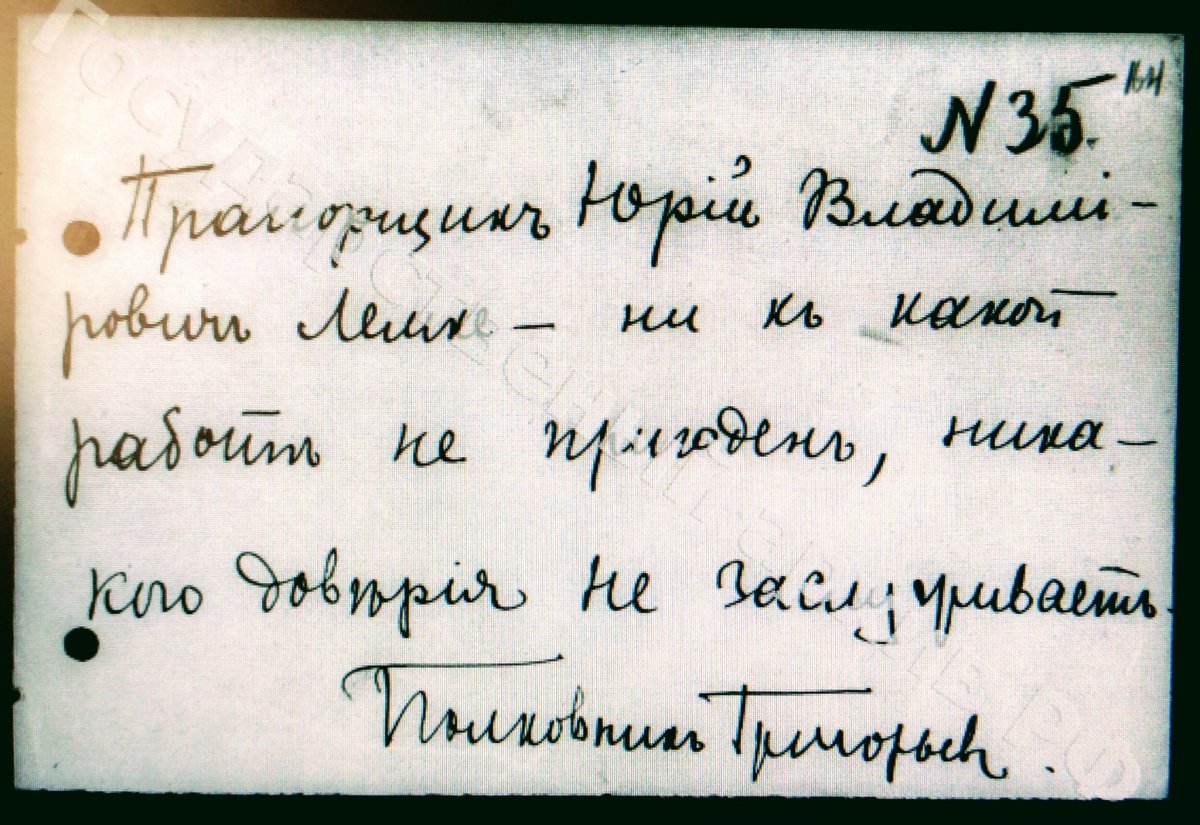 N 35.
Прапорщикъ Юрій Владимі-
ровичъ Лемке – ни къ какой
работѣ не пригоденъ, ника-
кого довѣрія не заслуживаетъ.
Полковникъ Григорьев.